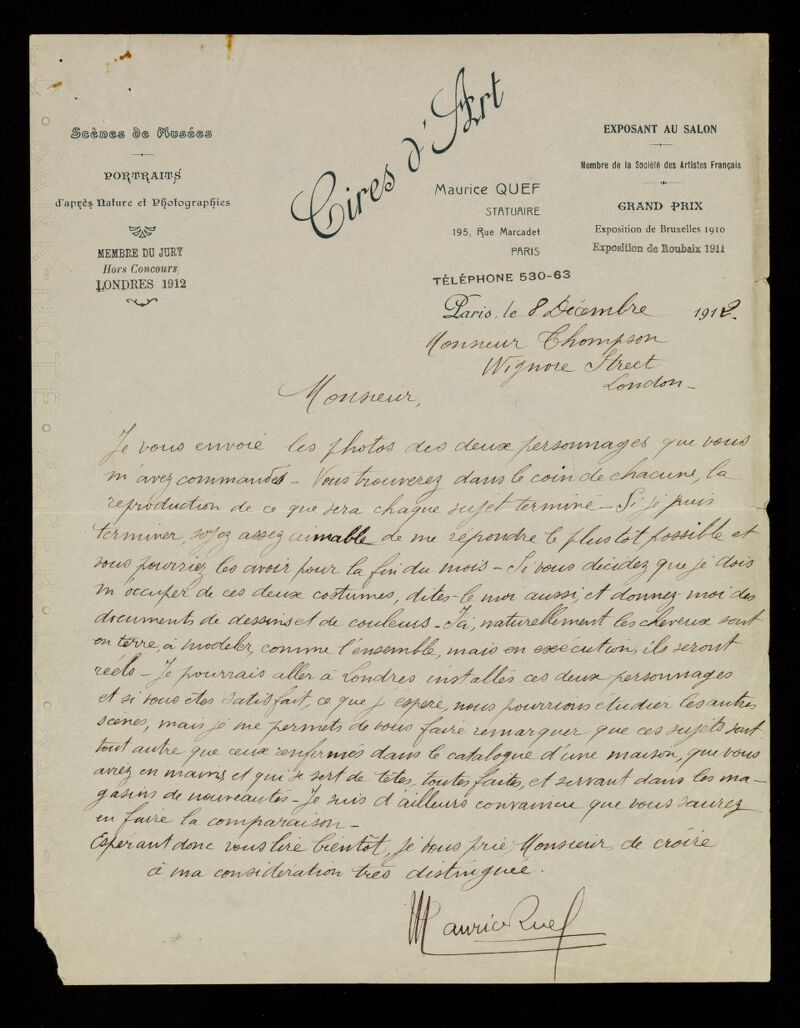 Scènes de Musées
PORTRAITS
d'après Nature et Photographies
MEMBRE DU JURY
Hors Concours
LONDRES 1912
Cires d'Art
Maurice QUEF
STATUAIRE
195, Rue Marcadet
PARIS
TÉLÉPHONE 530-63
EXPOSANT AU SALON
Membre de la Société des Artistes Français
GRAND PRIX
Exposition de Bruxelles 1910
Exposition de Roubaix 1911
Paris, le 8 Décembre 1912.
Monsieur Thompson
Wignore Street
London -
Monsieur,
Je vous envoie les photos des deux personnages que vous
m'avez commandés - Vous trouverez dans le coin de chacune, la
reproduction de ce que sera chaque sujet terminé - Si je puis
terminer, soyez assez aimable de me répondre le plus tôt possible et
vous pourriez les avoir pour la fin du mois - Si vous décidez que je dois
m'occuper de ces deux costumes, dites-le moi aussi, et donnez moi des
documents de dessins et de couleurs - Ici, naturellement les cheveux sont
en terre, à modeler, comme l'ensemble, mais en exécution, ils seront
réels - Je pourrais aller à Londres installés ces deux personnages
et si vous êtes satisfait, ce que j'espère, nous pourrions étudier les autres
scènes, mais je me permets de vous faire remarquer que ces sujets sont
tout autre que ceux renfermés dans le catalogue d'une maison, que vous
aviez en mains, et qui se sert de têtes, toutes faites, et servant dans les ma-
gasins de nouveautés - Je suis d'ailleurs convaincu que vous saurez
en faire la comparaison -
Espérant donc vous lire bientôt, je vous prie Monsieur, de croire
à ma considération très distinguée.
Maurice Quef